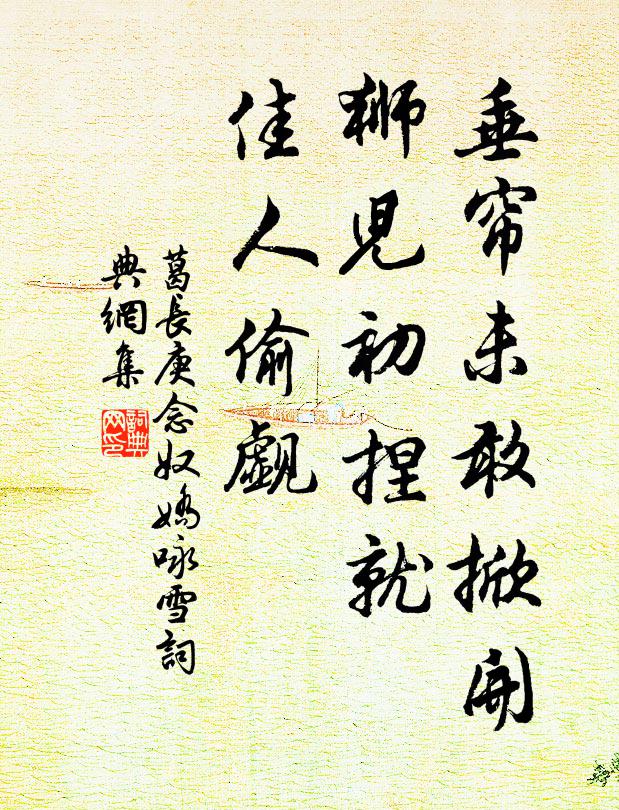 垂帘未敢掀開
獅児初捏就
佳人偷覷
葛長庚念奴嬌咏雪詞
典網集
詞典網印